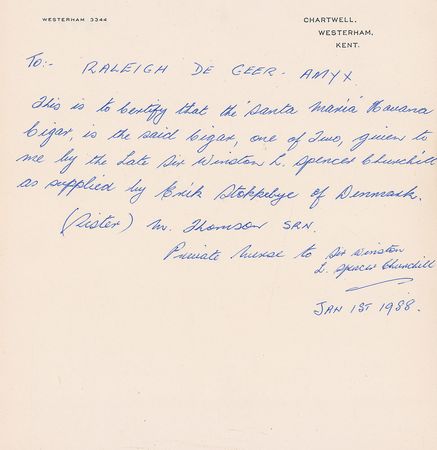 WESTERHAM 3344
CHARTWELL,
WESTERHAM,
KENT.
To:- RALEIGH DE GEER. AMYX
This is to Certify that the 'Santa Maria' Havana
Cigar, is the said Cigar, one of Two, given to
me by the Late Sir Winston L. Spencer Churchill
as supplied by Erik Stokkebye of Denmark.
(Sister) M. Thomson SRN.
Private Nurse to Sir Winston
L. Spencer Churchill
JAN 1ST 1988.